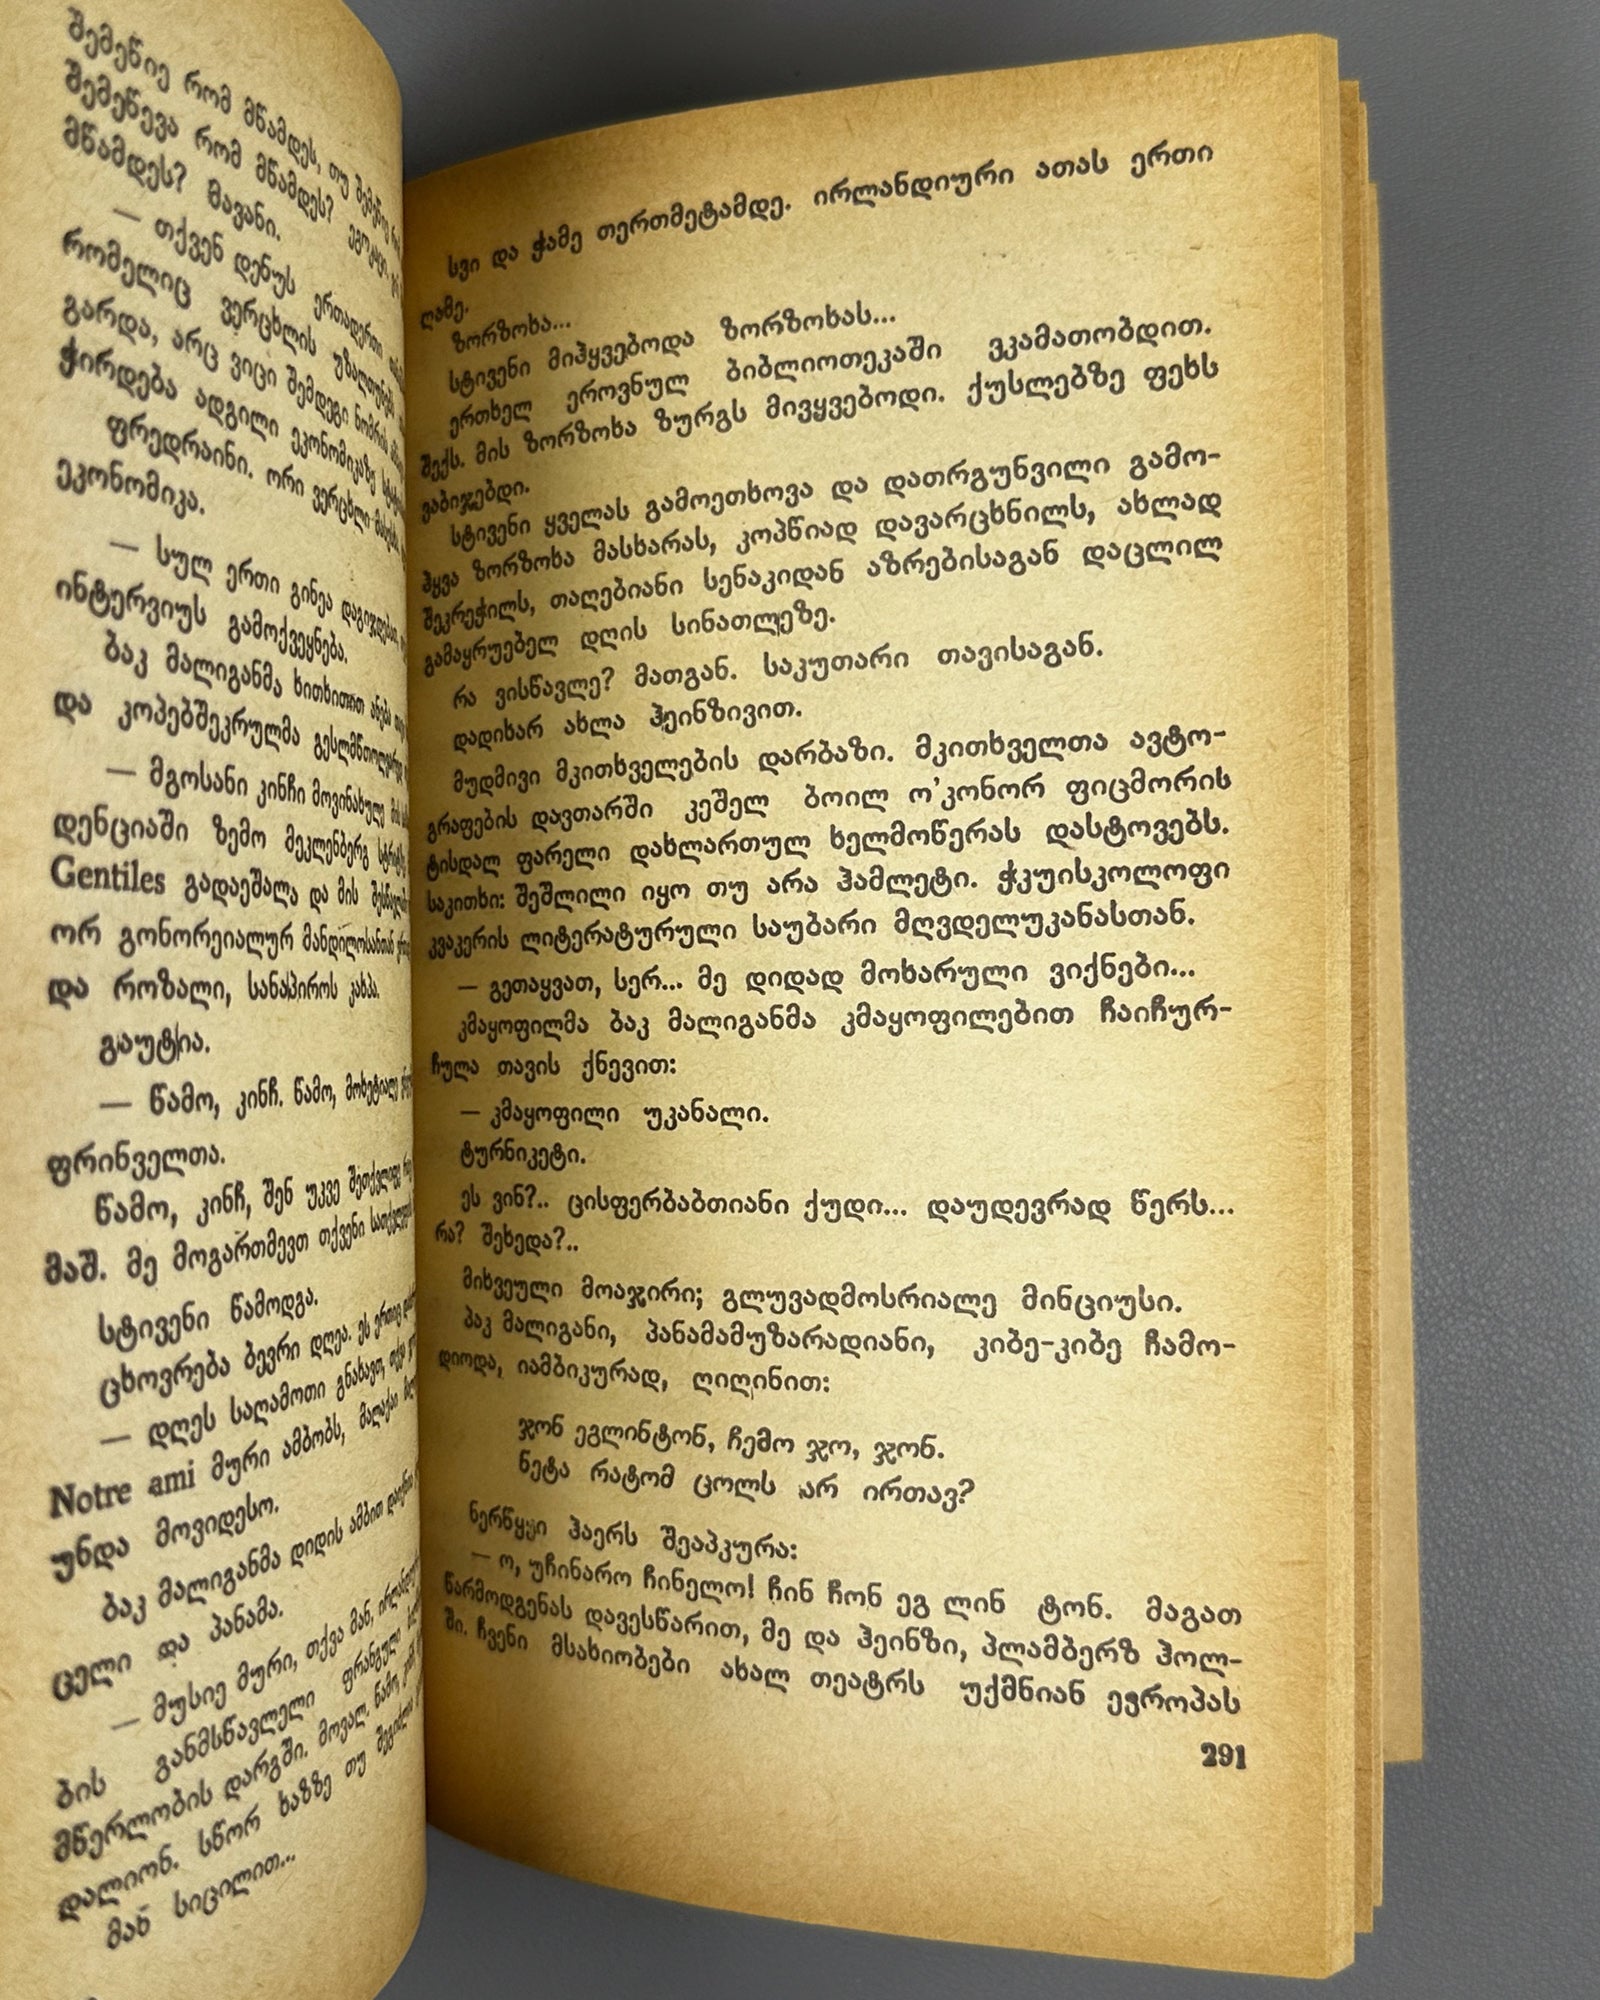 შემეწიე რომ მწამდეს, თუ
შემეწევა რომ მწამდეს?
მწამდეს? მავანი.
— თქვენ დენუს ერთადერთი
რომელიც ვერცხლის უზალთუნებს
გარდა, არც ვიცი შემდეგი ნომრის
ჭირდება ადგილი ეკონომიკაზე
ფრედრაინი. ორი ვერცხლი
ეკონომიკა.
— სულ ერთი გინეა დაგიჯდებათ.
ინტერვიუს გამოქვეყნება.
ბაკ მალიგანმა ხითხითით ანება
და კოპებშეკრულმა
— მგოსანი კინჩი მოვინახულე მის
დენციაში ზემო მეკლენბერგ სტრიტზე
Gentiles გადაეშალა და მის
ორ გონორეიალურ მანდილოსანთან
და როზალი, სანაპიროს კახპა.
გაუტია.
— წამო, კინჩ. წამო, მოხეტიალე
ფრინველთა.
წამო, კინჩ, შენ უკვე
მაშ. მე მოგართმევთ თქვენი
სტივენი წამოდგა.
ცხოვრება ბევრი დღეა. ეს ერთიც
— დღეს საღამოთი გნახავთ, თქვა
Notre ami მური ამბობს, მალაქაი
უნდა მოვიდესო.
ბაკ მალიგანმა დიდის ამბით
ცელი და პანამა.
— მუსიე მური, თქვა მან,
ბის განმსწავლელი ფრანგული
მწერლობის დარგში. მოვალ. წამო, კინჩ
დალიონ. სწორ ხაზზე თუ შეგიძლია
მან სიცილით...
სვი და ჭამე თერთმეტამდე. ირლანდიური ათას ერთი
ღამე.
ზორზოხა...
სტივენი მიჰყვებოდა ზორზოხას...
ერთხელ ეროვნულ ბიბლიოთეკაში ვკამათობდით.
შექს. მის ზორზოხა ზურგს მივყვებოდი. ქუსლებზე ფეხს
ვაბიჯებდი.
სტივენი ყველას გამოეთხოვა და დათრგუნვილი გამო-
ჰყვა ზორზოხა მასხარას, კოპწიად დავარცხნილს, ახლად
შეკრეჭილს, თაღებიანი სენაკიდან აზრებისაგან დაცლილ
გამაყრუებელ დღის სინათლეზე.
რა ვისწავლე? მათგან. საკუთარი თავისაგან.
დადიხარ ახლა ჰეინზივით.
მუდმივი მკითხველების დარბაზი. მკითხველთა ავტო-
გრაფების დავთარში კეშელ ბოილ ო’კონორ ფიცმორის
ტისდალ ფარელი დახლართულ ხელმოწერას დასტოვებს.
საკითხი: შეშლილი იყო თუ არა ჰამლეტი. ჭკუისკოლოფი
კვაკერის ლიტერატურული საუბარი მღვდელუკანასთან.
— გეთაყვათ, სერ... მე დიდად მოხარული ვიქნები...
კმაყოფილმა ბაკ მალიგანმა კმაყოფილებით ჩაიჩურ-
ჩულა თავის ქნევით:
— კმაყოფილი უკანალი.
ტურნიკეტი.
ეს ვინ?.. ცისფერბაბთიანი ქუდი... დაუდევრად წერს...
რა? შეხედა?..
მიხვეული მოაჯირი; გლუვადმოსრიალე მინციუსი.
პაკ მალიგანი, პანამამუზარადიანი, კიბე-კიბე ჩამო-
დიოდა, იამბიკურად, ღიღინით:
ჯონ ეგლინტონ, ჩემო ჯო, ჯონ.
ნეტა რატომ ცოლს არ ირთავ?
ნერწყვი ჰაერს შეაპკურა:
— ო, უჩინარო ჩინელო! ჩინ ჩონ ეგ ლინ ტონ. მაგათ
წარმოდგენას დავესწარით, მე და ჰეინზი, პლამბერზ ჰოლ-
ში. ჩვენი მსახიობები ახალ თეატრს უქმნიან ევროპას
291